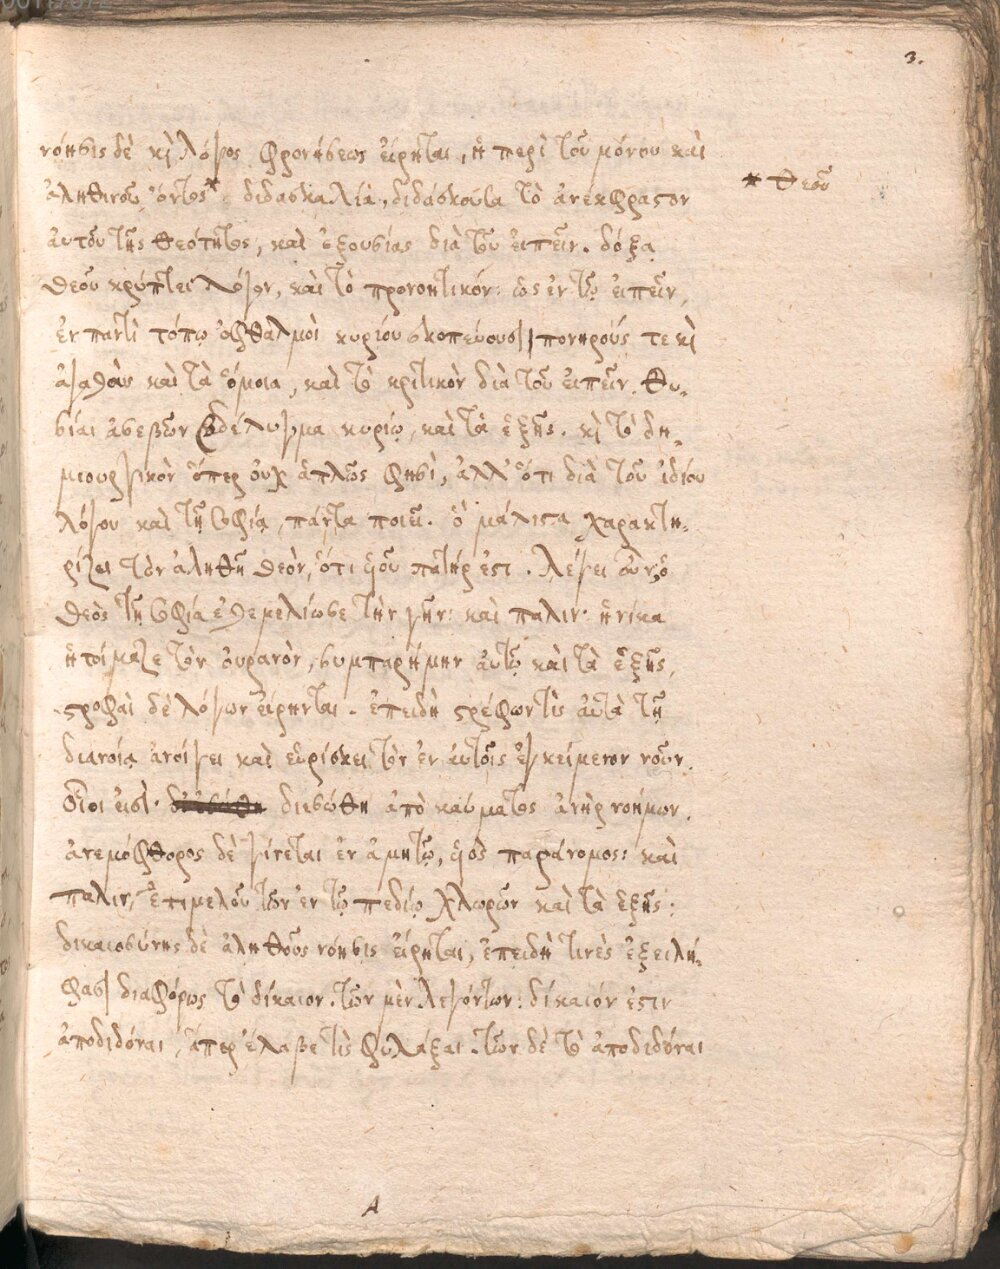 3.
νόησις δὲ κὶ λόγος φρονήσεως εἴρηται, ἡ περὶ τοῦ μόνου καὶ
ἀληθινοῦ ὄντος* διδασκαλία, διδάσκουσα τὸ ἀνέκφραστον
* θεοῦ
αὐτοῦ τῆς θεότητος, καὶ ἐξουσίας διὰ τοῦ εἰπεῖν. δόξα
θεοῦ κρύπτει λόγον, καὶ τὸ προνοητικόν: ὡς ἐν τῷ εἰπεῖν,
ἐν παντὶ τόπῳ ὀφθαλμοὶ κυρίου σκοπεύουσι πονηρούς τε κὶ
ἀγαθοὺς καὶ τὰ ὅμοια, καὶ τὸ κριτικὸν διὰ τοῦ εἰπεῖν. θυ-
σίαι ἀσεβῶν βδέλυγμα κυρίῳ, καὶ τὰ ἑξῆς. κὶ τὸ δη-
μιουργικὸν ὅπερ οὐχ ἁπλῶς φησὶ, ἀλλ' ὅτι διὰ τοῦ ἰδίου
λόγου καὶ τῇ σοφίᾳ, πάντα ποιεῖ. ὃ μάλιστα χαρακτη-
ρίζει τὸν ἀληθῆ θεὸν, ὅτι υἱοῦ πατήρ ἐστι. λέγει οὖν, ὁ
θεὸς τῇ σοφίᾳ ἐθεμελίωσε τὴν γῆν: καὶ πάλιν. ἡνίκα
ἡτοίμαζε τὸν οὐρανὸν, συμπαρήμην αὐτῷ καὶ τὰ ἑξῆς,
στροφαὶ δὲ λόγων εἴρηνται. ἐπειδὴ στρέφων τὶς αὐτὰ τῇ
διανοίᾳ ἀνοίγει καὶ εὑρίσκει τὸν ἐν αὐτοῖς ἐγκείμενον νοῦν.
οἷοι εἰσὶ. διεσώθη ἀπὸ καύματος ἀνὴρ νοήμων.
ἀνεμόφθορος δὲ γίνεται ἐν ἀμητῷ, υἱὸς παράνομος: καὶ
πάλιν, ἐπιμελοῦ τῶν ἐν τῷ πεδίῳ χλωρῶν καὶ τὰ ἑξῆς:
δικαιοσύνης δὲ ἀληθοῦς νόησις εἴρηται, ἐπειδὴ τινὲς ἐξειλή-
φασι διαφόρως τὸ δίκαιον. τῶν μὲν λεγόντων: δίκαιόν ἐστιν
ἀποδιδόναι, ἅπερ ἔλαβε τὶς φυλάξαι. τῶν δὲ τὸ ἀποδιδόναι
A